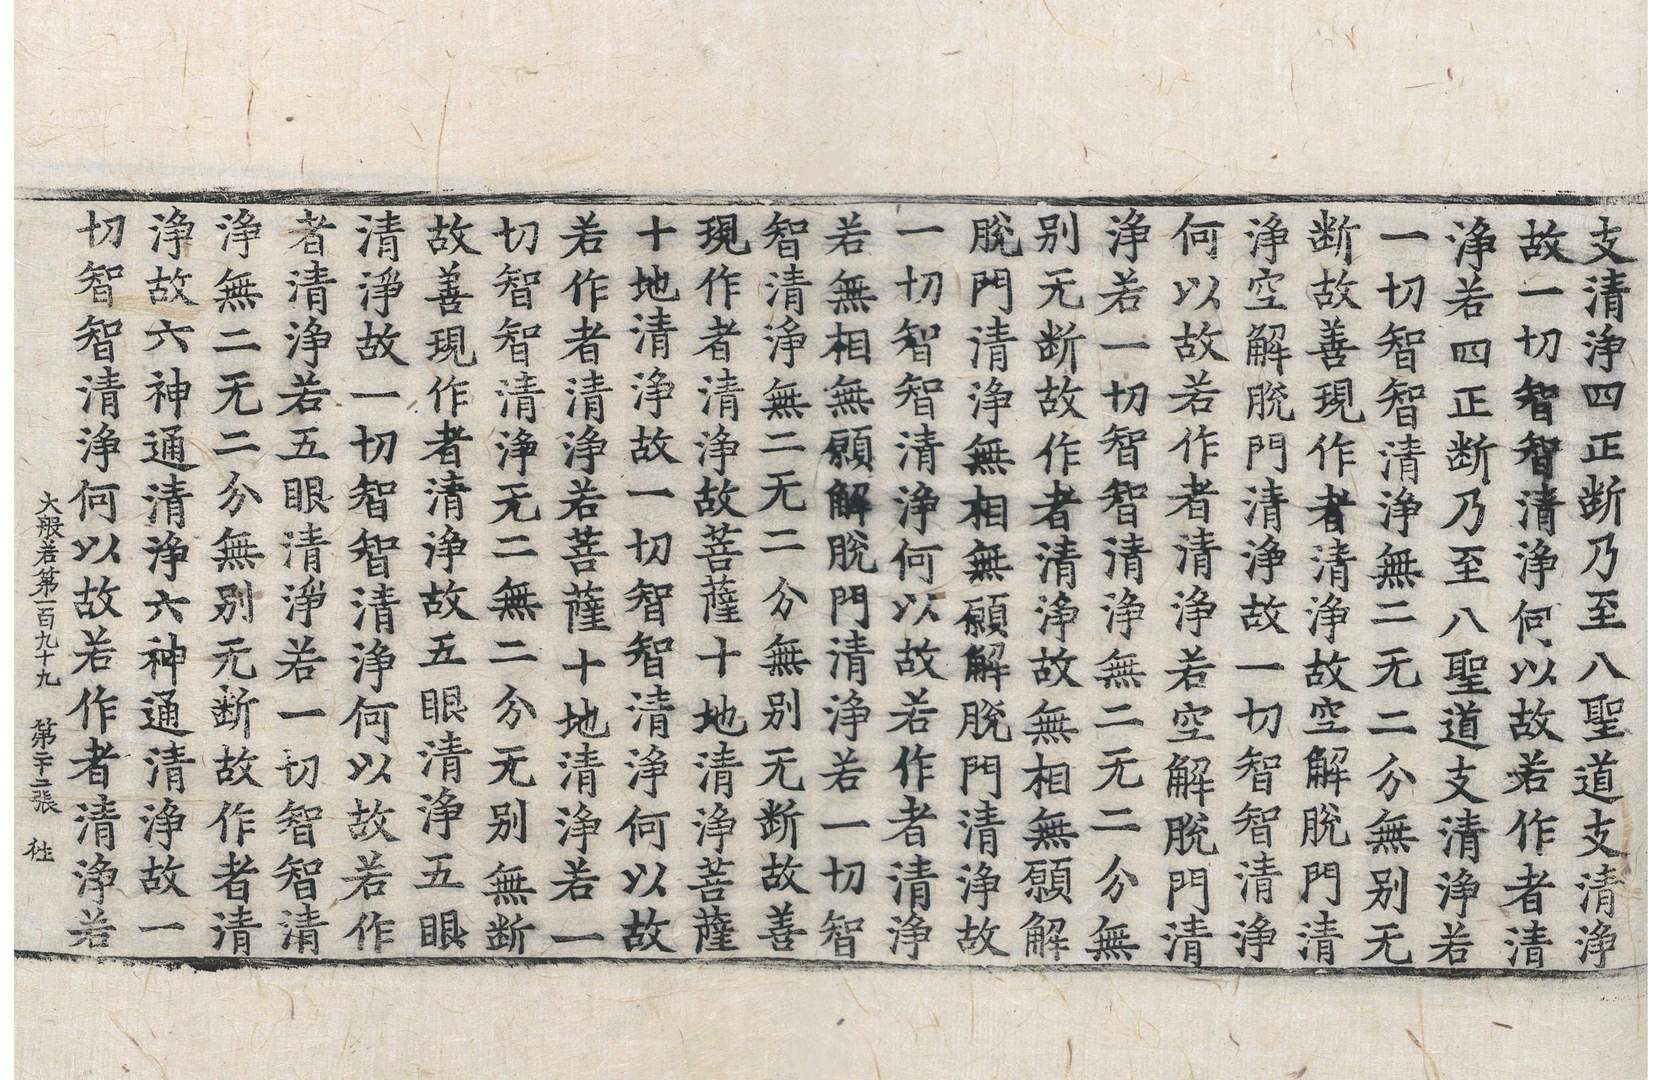 支清淨四正断乃至八聖道支清淨
故一切智智清淨何以故若作者清
淨若四正断乃至八聖道支清淨若
一切智智清淨無二无二分無别无
断故善現作者清淨故空解脫門清
淨空解脫門清淨故一切智智清淨
何以故若作者清淨若空解脫門清
淨若一切智智清淨無二无二分無
别无断故作者清淨故無相無願解
脫門清淨無相無願解脫門清淨故
一切智智清淨何以故若作者清淨
若無相無願解脫門清淨若一切智
智清淨無二无二分無别无断故善
現作者清淨故菩薩十地清淨菩薩
十地清淨故一切智智清淨何以故
若作者清淨若菩薩十地清淨若一
切智智清淨无二無二分无别無断
故善現作者清淨故五眼清淨五眼
清淨故一切智智清淨何以故若作
者清淨若五眼清淨若一切智智清
淨無二无二分無别无断故作者清
淨故六神通清淨六神通清淨故一
切智智清淨何以故若作者清淨若
大般若第一百九十九 第二十二張 往